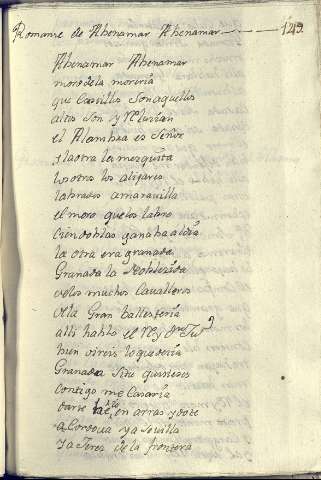 Romanse de Abenamar Abenamar 129.
Abenamar Abenamar
moro de la moreria
que Castillos Son aquellos
altos son y Relucian
el Alambra es Señor
y la otra la mezquita
los otros los alijares
labrados amaravilla
el moro que los labro
Cien doblas ganaba al dia
la otra era granada
Granada la Noblesida
de los muchos Cavalleros
de la Gran Ballesteria
alli hablo el Rey Dn Jun
bien oireis lo que deria
Granada Situ quisieses
Contigo me Casaria
darte en arras y dote
a Cordova y a Sevilla
y a Jerez de la frontera